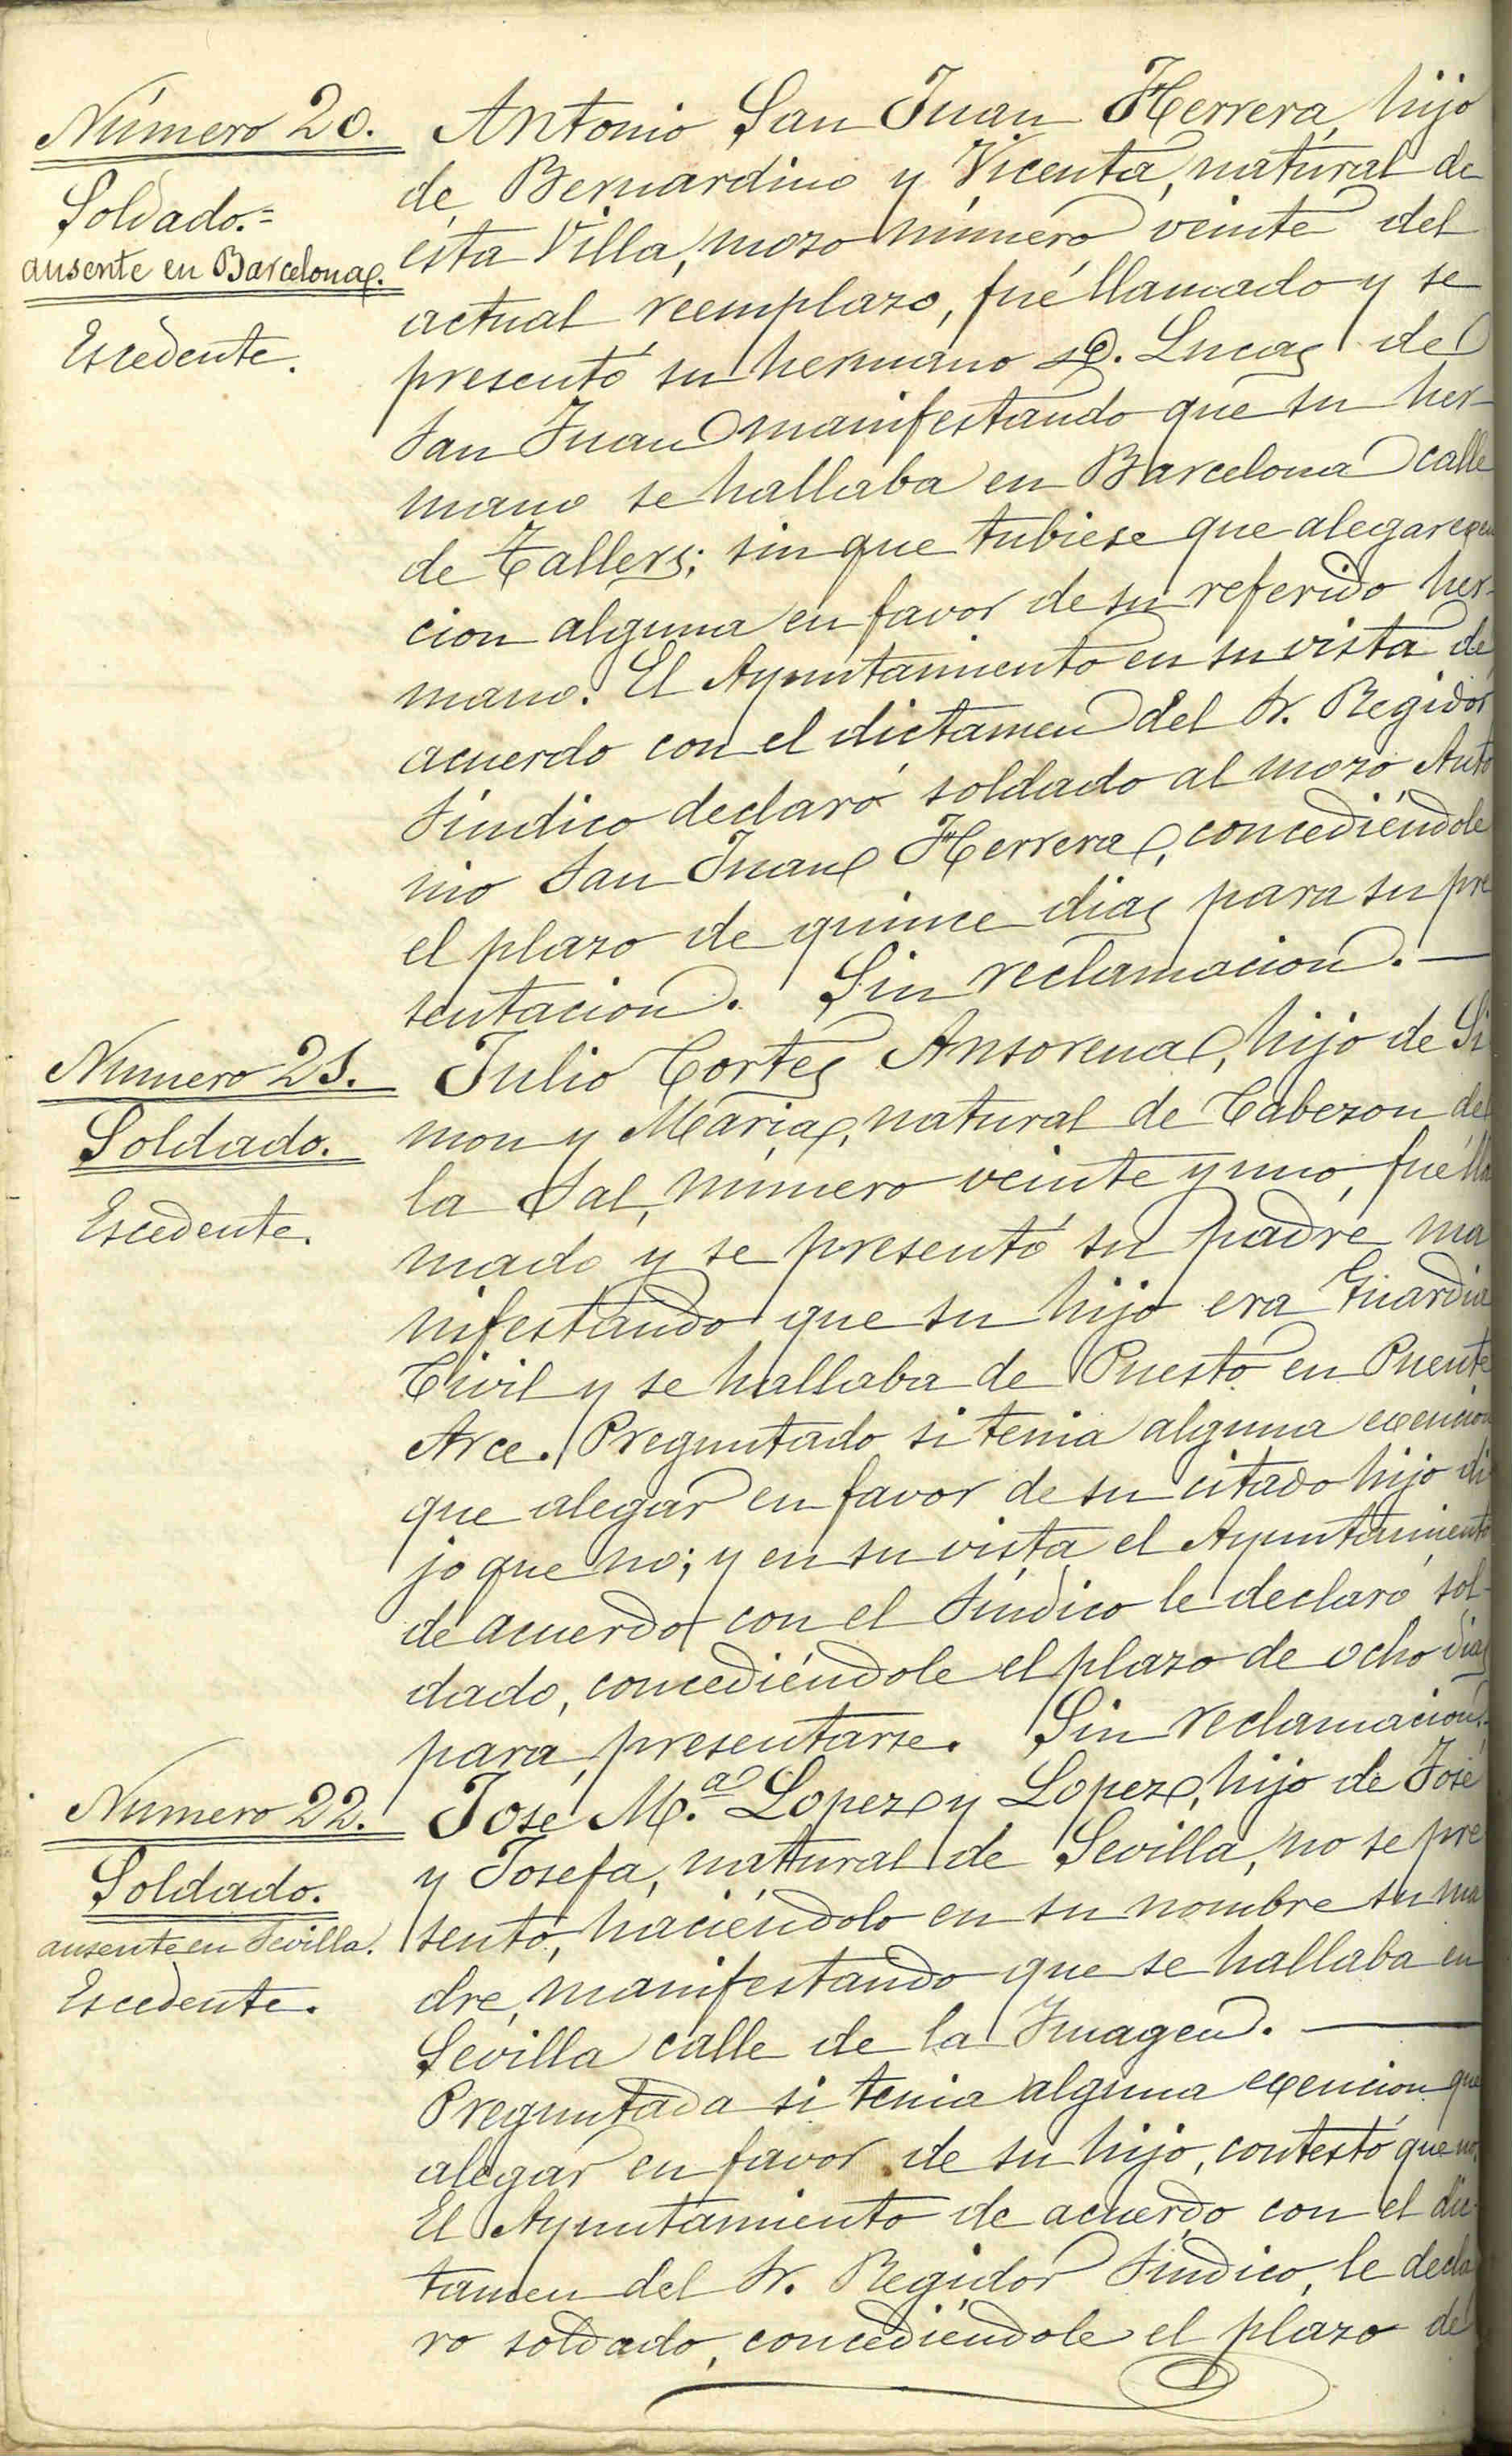 Número 20.
Soldado.=
ausente en Barcelona.
Escedente.
Antonio San Juan Herrera, hijo
de Bernardino y Vicenta, natural de
esta Villa, mozo número veinte del
actual reemplazo, fué llamado y se
presentó su hermano D. Lucas de
San Juan manifestando que su her-
mano se hallaba en Barcelona calle
de Tallers; sin que tubiese que alegar exen
cion alguna en favor de su referido her-
mano. El Ayuntamiento en su vista de
acuerdo con el dictamen del Sr. Regidor
Síndico declaró soldado al mozo Anto
nio San Juan Herrera, concediéndole
el plazo de quince dias para su pre
sentacion. Sin reclamacion.—
Numero 21.
Soldado.
Escedente.
Julio Cortes Ansorena, hijo de Si
mon y Maria, natural de Cabezon de
la Sal, número veinte y uno, fué lla
mado y se presentó su padre ma
nifestando que su hijo era Guardia
Civil y se hallaba de Puesto en Puente
Arce. Preguntado si tenia alguna exencion
que alegar en favor de su citado hijo di
jo que no; y en su vista el Ayuntamiento
de acuerdo con el Síndico le declaró sol-
dado, concediéndole el plazo de ocho dias
para presentarse. Sin reclamacion.
Numero 22.
Soldado.
ausente en Sevilla.
Escedente.
José M.ª Lopez y Lopez, hijo de José
y Josefa, natural de Sevilla, no se pre
sentó, haciéndolo en su nombre su ma
dre, manifestando que se hallaba en
Sevilla calle de la Imagen. —
Preguntada si tenia alguna exencion que
alegar en favor de su hijo, contestó que no.
El Ayuntamiento de acuerdo con el dic-
tamen del Sr. Regidor Síndico, le decla
ro soldado, concediéndole el plazo de